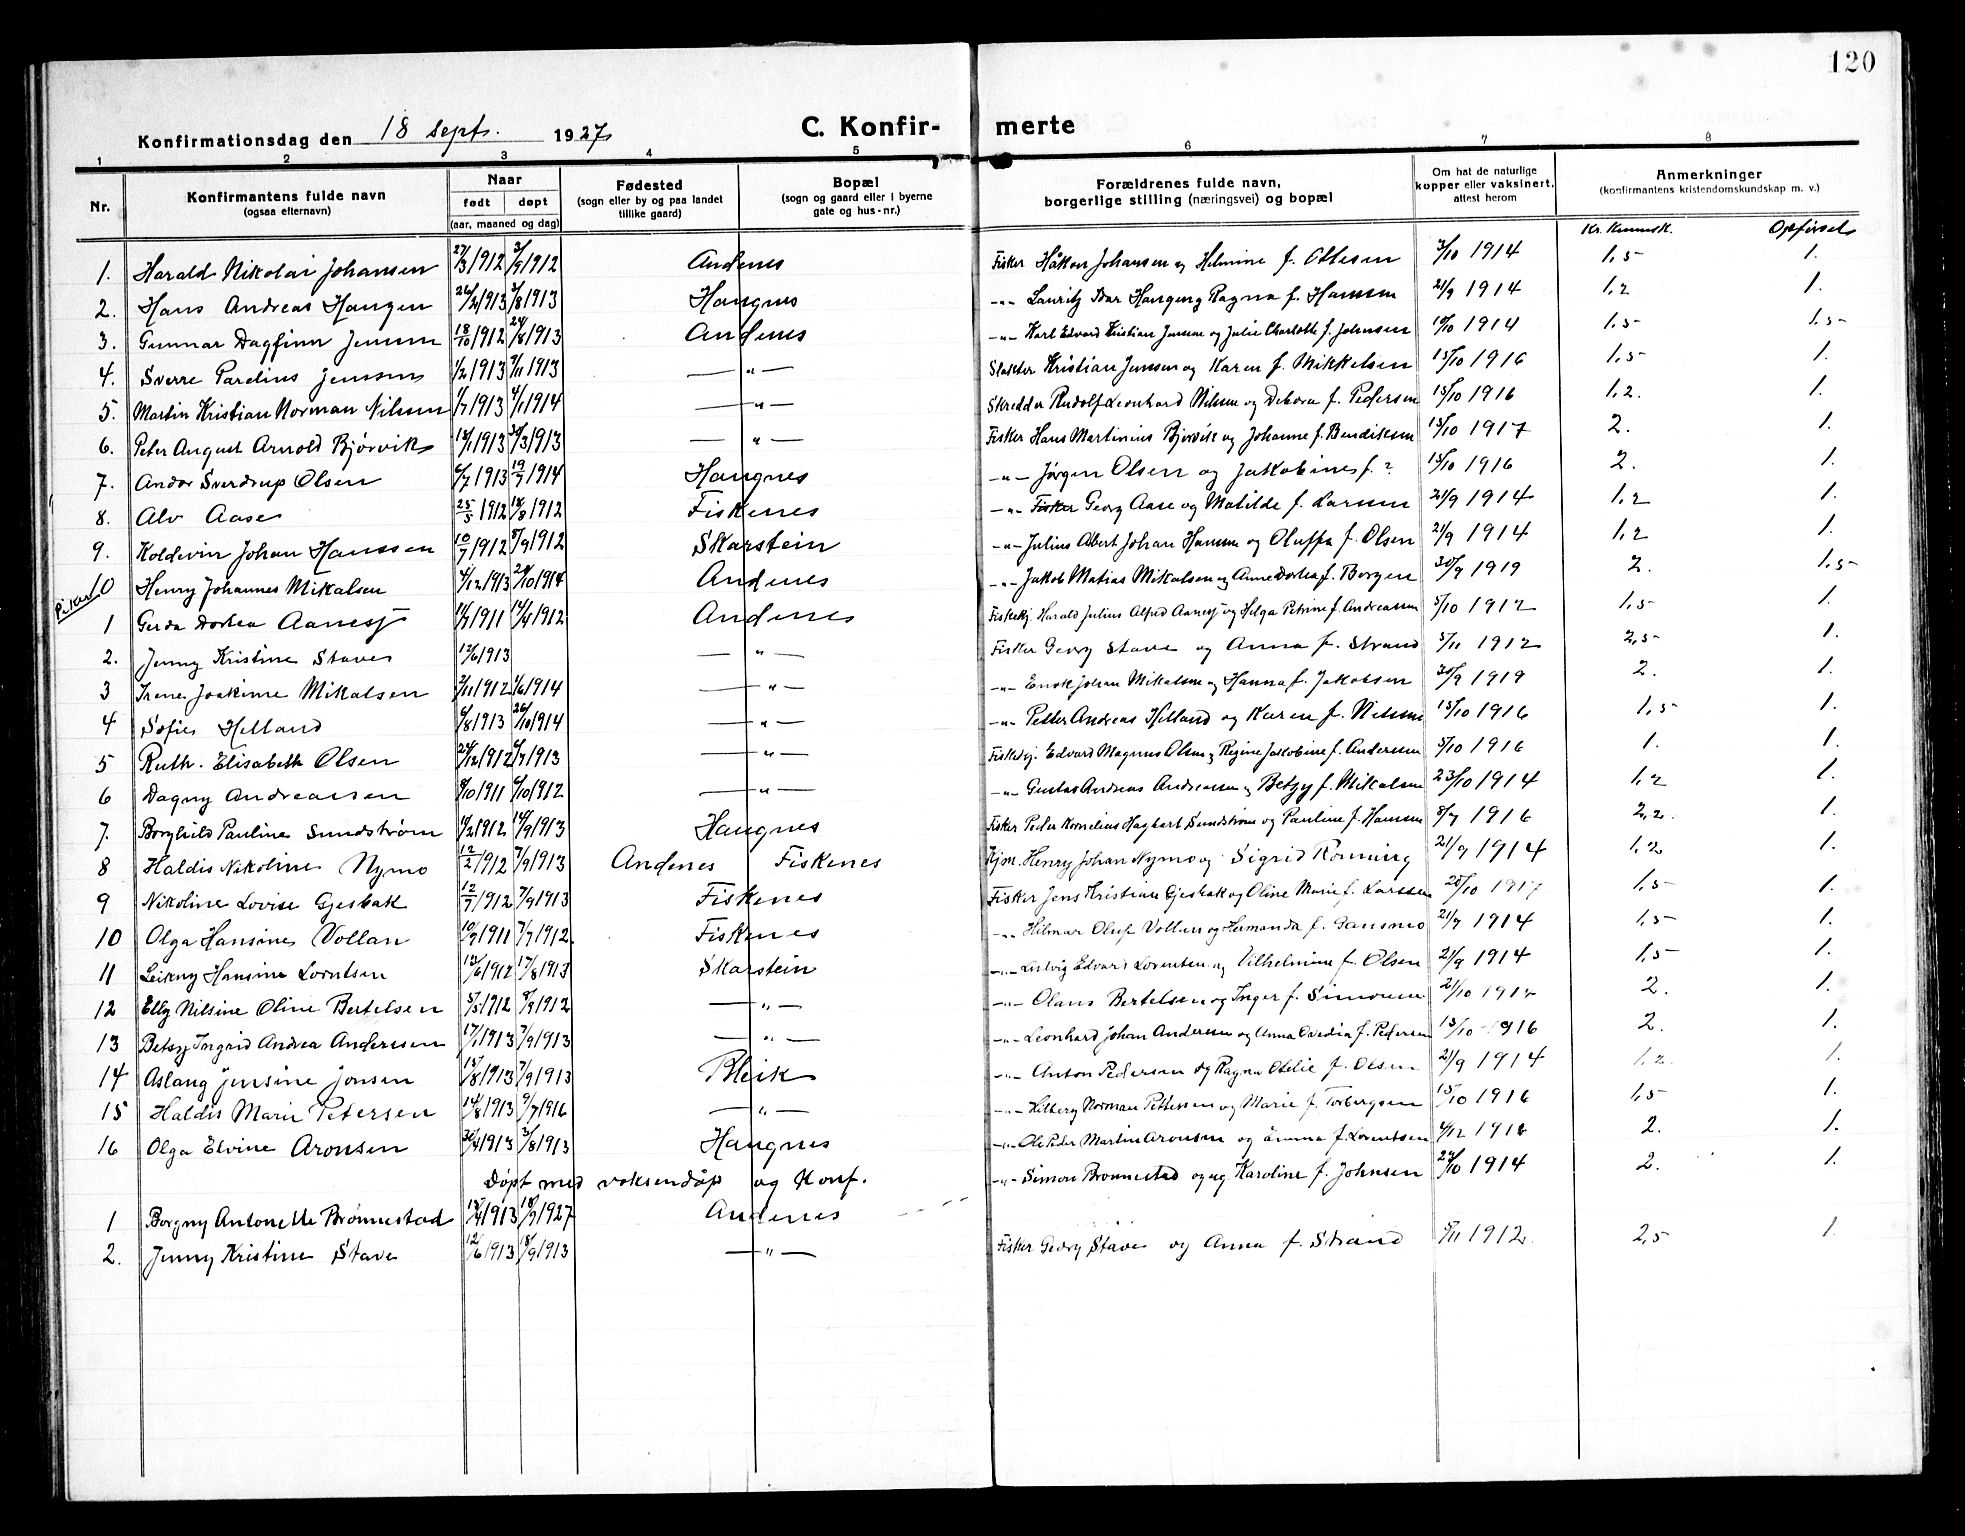 120
Konfirmationsdag den 18 sept. 1927
C. Konfir- merte
1 2 3 4 5 6 7 8
Nr.
Konfirmantens fulde navn
(ogsaa efternavn)
Naar
født døpt
(aar, maaned og dag)
Fødested
(sogn eller by og paa landet
tillike gaard)
Bopæl
(sogn og gaard eller i byerne
gate og hus-nr.)
Forældrenes fulde navn,
borgerlige stilling (næringsvei) og bopæl
Om hat de naturlige
kopper eller vaksinert,
attest herom
Anmerkninger
(konfirmantens kristendomskundskap m. v.)
Kr. Kunnsk. Opførsel
1. Harald Nikolai Johansen 27/3 1912 3/9 1912 Andenes Fisker Håkon Johansen og Helmine f. Ottesen 3/10 1914 1,5 1.
2. Hans Andreas Haugen 26/2 1913 3/8 1913 Haugnes -"- Lauritz Haugen og Ragna f. Hansen 21/9 1914 1,2 1.
3. Gunnar Dagfinn Jensen 18/10 1912 24/8 1913 Andenes -"- Karl Edvard Kristian Jensen og Julie Charlotte f. Johnsen 10/10 1914 1,5 1,5
4. Sverre Parelius Jensen 1/2 1913 2/11 1913 — " — Slakter Kristian Jensen og Karen f. Mikkelsen 15/10 1916 1,5 1.
5. Martin Kristian Norman Nilsen 1/7 1913 4/1 1914 — " — Skredder Rudolf Leonhard Nilsen og Debora f. Pedersen 15/10 1916 1,2. 1.
6. Peter August Arnold Bjørvik 13/1 1913 30/3 1913 — " — Fisker Hans Martinius Bjørvik og Johanne f. Bendiksen 15/10 1917 2. 1.
7. Andor Sverdrup Olsen 6/7 1913 19/7 1914 Haugnes -"- Jørgen Olsen og Jakobine f. ? 15/10 1916 2. 1.
8. Alv Aase 25/5 1912 18/8 1912 Fiskenes -"- Fisker Georg Aase og Matilde f. Larsen 21/9 1914 1,2 1.
9. Koldevin Johan Hanssen 10/7 1912 8/9 1912 Skarstein -"- Julius Albert Johan Hansen og Oluffa f. Olsen 21/9 1914 1,2 1.
10 Henry Johannes Mikalsen 4/12 1913 24/10 1914 Andenes -"- Jakob Matias Mikalsen og Anne Dortea f. Borgen 30/9 1919 2. 1,5
Piker
1 Gerda Dortea Aanesj 11/9 1911 14/4 1912 Andenes Fiskekj. Harald Julius Alfred Aanesj og Helga Petrine f. Andreassen 5/10 1912 1,5 1.
2. Jenny Kristine Stave 12/6 1913 — " — Fisker Georg Stave og Anna f. Strand 5/11 1912 2,5 1.
3 Irene Joakime Mikalsen 2/11 1912 1/6 1914 — " — -"- Enok Johan Mikalsen og Hanna f. Jakobsen 30/9 1919 2. 1.
4 Sofie Helland 6/8 1913 26/10 1914 — " — -"- Petter Andreas Helland og Karen f. Nilsen 15/10 1916 1,5 1.
5 Ruth. Elisabeth Olsen 24/12 1912 6/7 1913 — " — Fiskekj. Edvard Magnus Olsen og Regine Jakobine f. Andersen 5/10 1916 1. 1.
6 Dagny Andreassen 8/10 1911 6/10 1912 — " — -"- Gustav Andreas Andreassen og Betzy f. Mikalsen 23/10 1914 1,2 1.
7. Borghild Pauline Sundstrøm 11/2 1912 14/9 1913 Haugnes Fisker Peder Kornelius Hagbart Sundstrøm og Pauline f. Hansen 8/7 1916 2,2. 1.
8 Haldis Nikoline Nymo 12/2 1912 7/9 1913 Andenes Fiskenes Kjm. Henry Johan Nymo og Sigrid Rönning 21/9 1914 1,2 1.
9 Nikoline Lovise Gjesbak 12/7 1912 7/9 1913 Fiskenes Fisker Jens Kristian Gjesbak og Oline Marie f. Larssen 25/10 1917 1,5 1.
10 Olga Hansine Vollan 10/9 1911 7/7 1912. Fiskenes -"- Hilmar Oluf Vollan og Hermanda f. Gausmo 21/9 1914 1,5 1.
11 Leikny Hansine Lorntsen 13/6 1912 17/8 1913 Skarstein -"- Ludvig Edvard Lorentsen og Vilhelmine f. Olsen 21/9 1914 1,5 1.
12 Elly Nilsine Oline Bertelsen 5/5 1912 8/9 1912 — " — -"- Olaus Bertelsen og Inger f. Simonsen 21/10 2. 1.
13 Betsy Ingrid Andrea Anderssen 17/1 1913 7/9 1913 — " — -"- Leonhard Johan Andersen og Anna Ovedia f. Pedersen 15/10 1916 2. 1.
14 Aslaug Jensine Jonsen 15/8 1913 7/9 1913 Bleik -"- Anton Pedersen og Ragna Otelie f. Olsen 21/9 1914 1,2. 1.
15 Haldis Marie Petersen 14/8 1913 9/7 1916 — " — -"- Hilberg Norman Pettersen og Marie f. Torbergsen 15/10 1916 1,5 1.
16 Olga Elvine Aronsen 30/4 1913 3/8 1913 Haugnes -"- Ole Peder Martin Aronsen og Emma f. Lorentsen 4/12 1918 2. 1.
Døpt med voksendåp og Konf.
1 Borgny Antonette Brönnestad 15/4 1913 18/9 1927 Andenes -"- Simon Bronnestad og Karoline f. Johnsen 24/10 1914 2. 1.
2. Jenny Kristine Stave 12/6 1913 18/9 1913 — " — Fisker Georg Stave og Anna f. Strand 5/11 1912. 2,5 1.